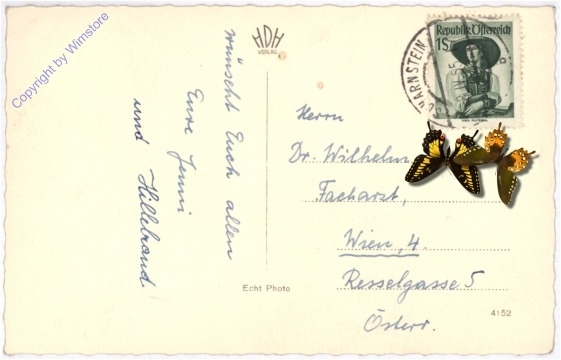 Copyright by Wimstore
HDH
VERLAG
wünscht Euch allen
Eure Jenni
und Hillebrand
Echt Photo
Republik Österreich
1S
ARNSTEIN
Herrn
Dr. Wilhelm
Facharzt,
Wien, 4.
Resselgasse 5
Österr.
4152